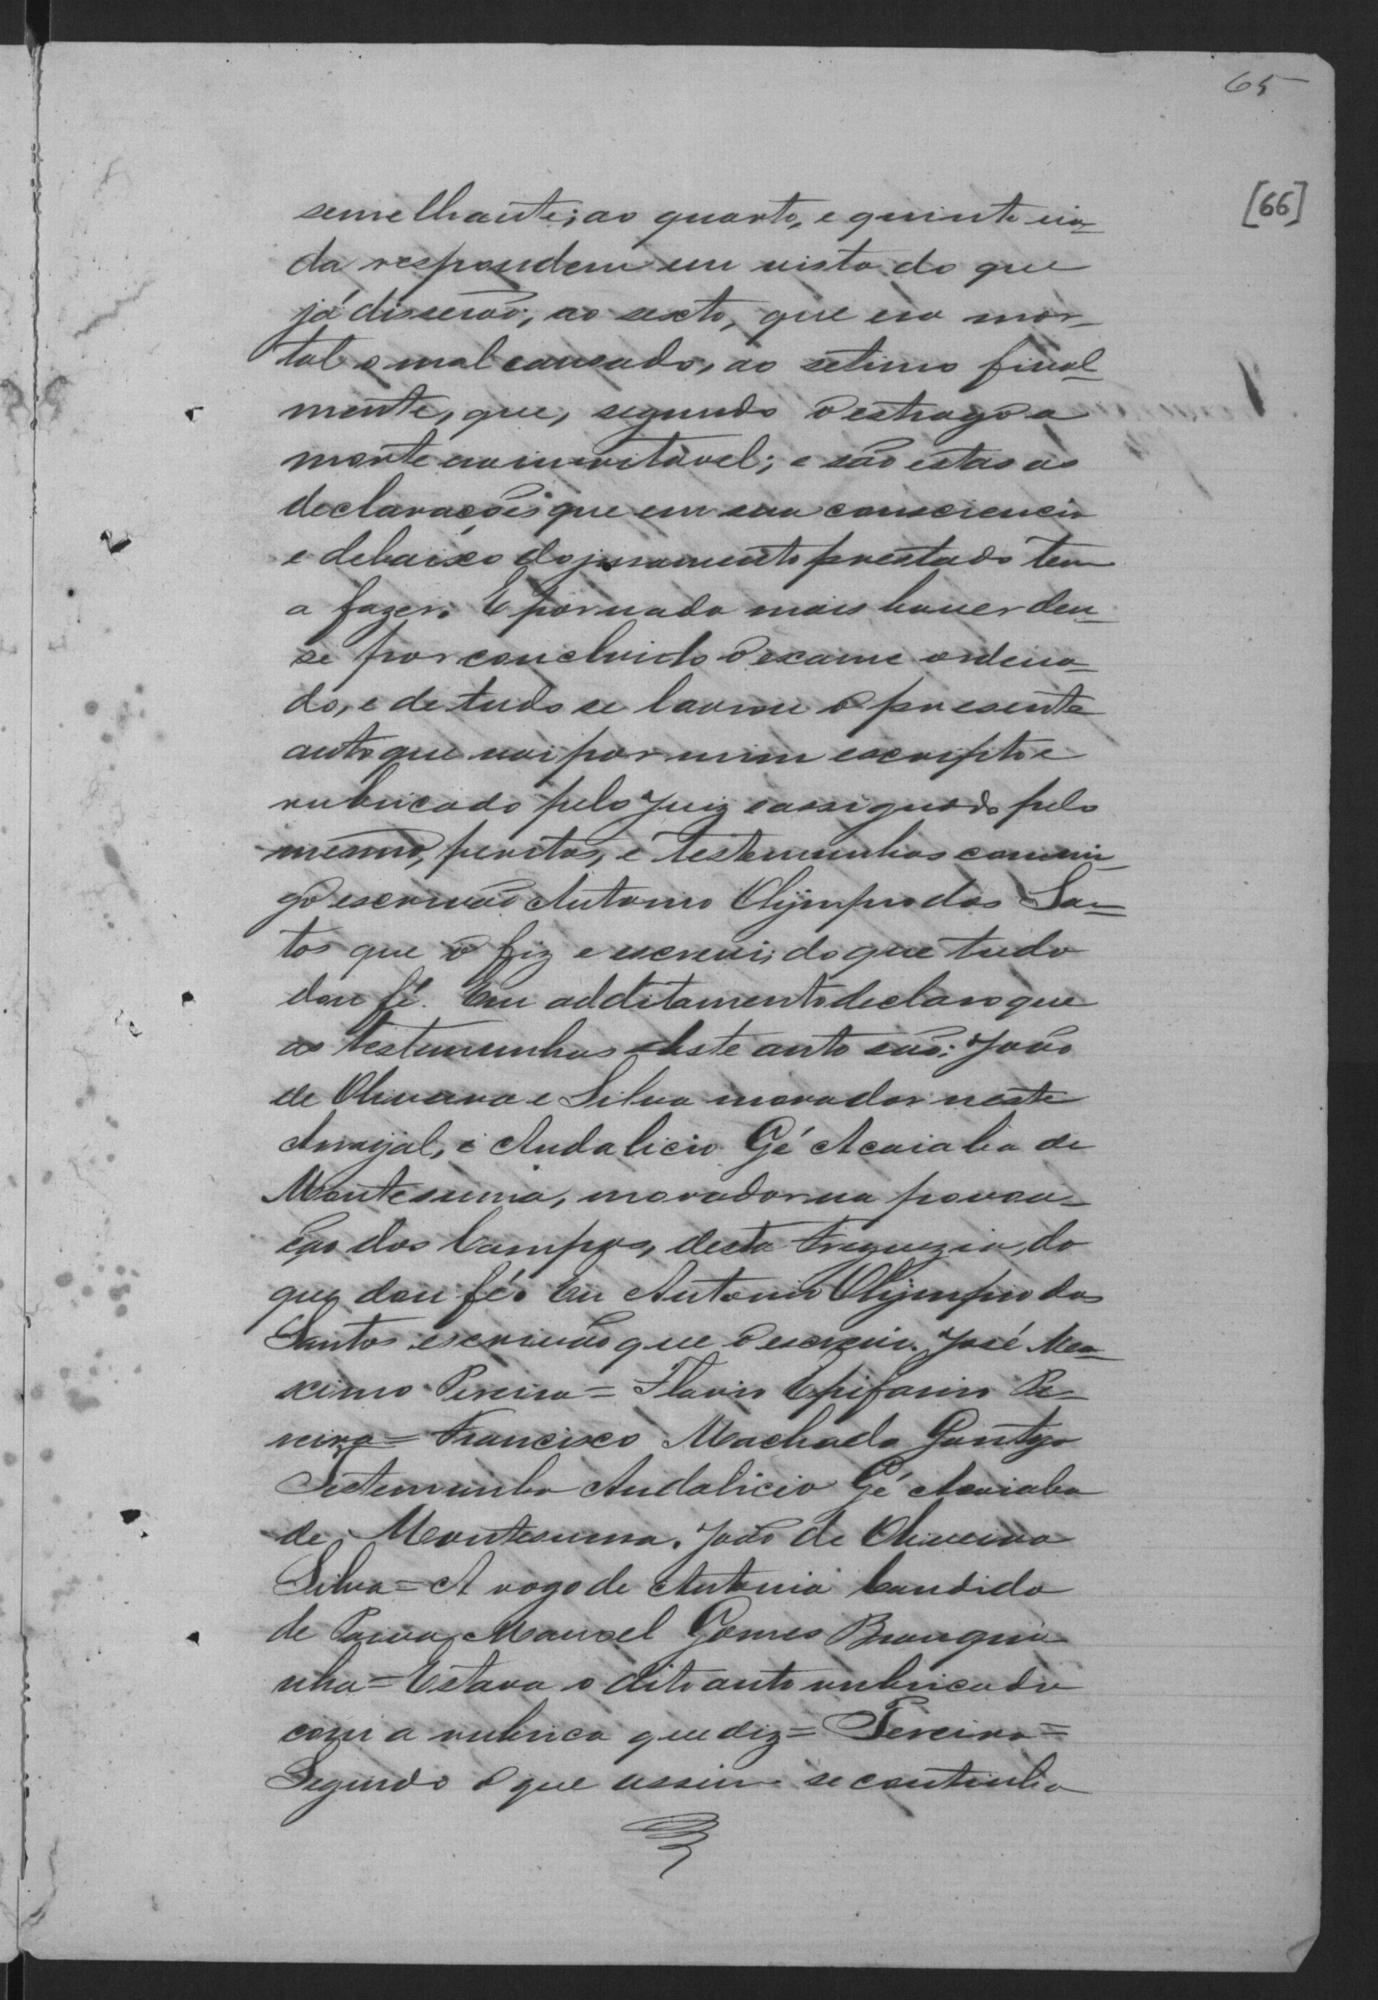 65
[66]
semelhante; ao quarto, e quinto na-
da respondem em vista do que
já disserão; ao sexto, que era mor-
tal o mal causado, ao setimo final-
mente, que, segundo o estrago a
morte era inevitavel; e são estas as
declarações que em sua consciencia
e debaixo do juramento prestado tem
a fazer. E por nada mais haver deu-
se por concluido o exame ordena-
do, e de tudo se lavrou o presente
auto que vai por mim escripto e
rubricado pelo Juiz e assignado pelo
mesmo, peritos, e testemunhas commi-
go escrivão Antonio Olÿmpio dos San-
tos que o fiz e escrevi; do que tudo
dou fé. Em additamento declaro que
as testemunhas deste auto são: João
de Oliveira e Silva morador neste
Arraÿal, e Andalicio Gé Acaiaba de
Montesuma, morador na povoa-
ção dos Campos, desta freguezia, do
que dou fé. Eu Antonio Olÿmpio dos
Santos escrivão que o escrevi. José Ma-
ximo Pereira = Flavio Epifanio Pe-
reira = Francisco Machado Gontÿo
Testemunha Andalicio Gé Acaiaba
de Montesuma. João de Oliveira
Silva = A rogo de Antonia Candida
de Paiva, Manoel Gomes Branqui-
nha = Estava o dito auto rubricado
com a rubrica que diz = Pereira =
Segundo o que assim se continha